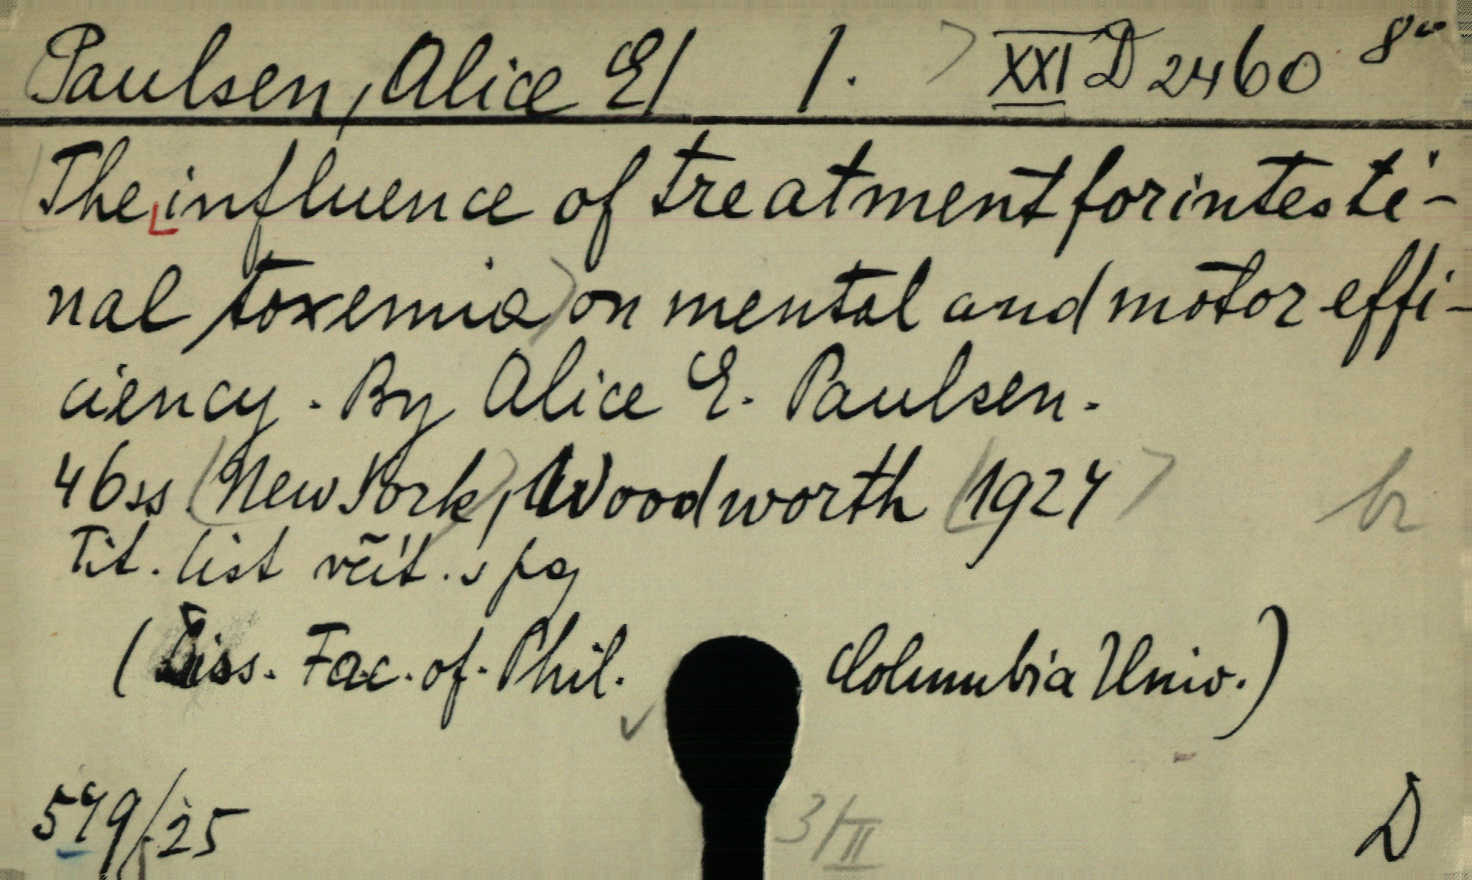 Paulsen, Alice E/ 1. XXI D 2460 8°
The influence of treatment for intesti-
nal toxemia on mental and motor effi-
ciency. By Alice E. Paulsen.
46 ss (New York), Woodworth (1924)
Tit. list včít. s pg
(Diss. Fac. of. Phil. Columbia Univ.)
579/25 3/II D